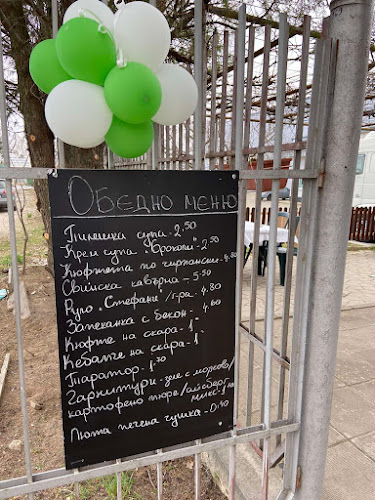 Обедно меню
Пилешка супа - 2,50
Крем супа "Броколи" - 2.50
Кюфтета по чирпански - 4.50
Свинска кавърма - 5.50
Руло "Стефани"/г-ра - 4.80
Запеканка с бекон - 4.60
Кюфте на скара - 1.-
Кебапче на скара - 1.-
Таратор - 1.30
Гарнитури - зеле с моркови/
картофено пюре/айсберг/
микс - 1
Люта печена чушка - 0.40